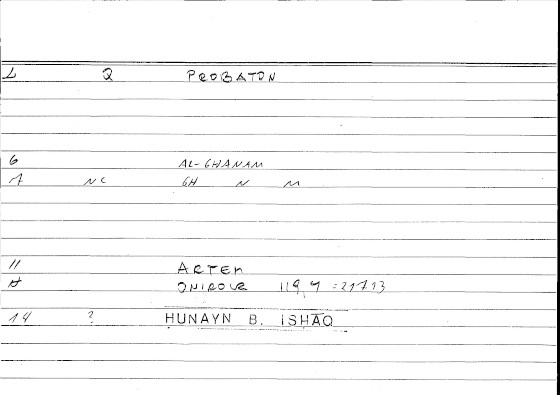 L Q PROBATON
6 AL-GHANAM
7 NC GH N M
11 ARTEM
ONIROCR 119,9 = 217,13
14 ? HUNAYN B. ISHAQ